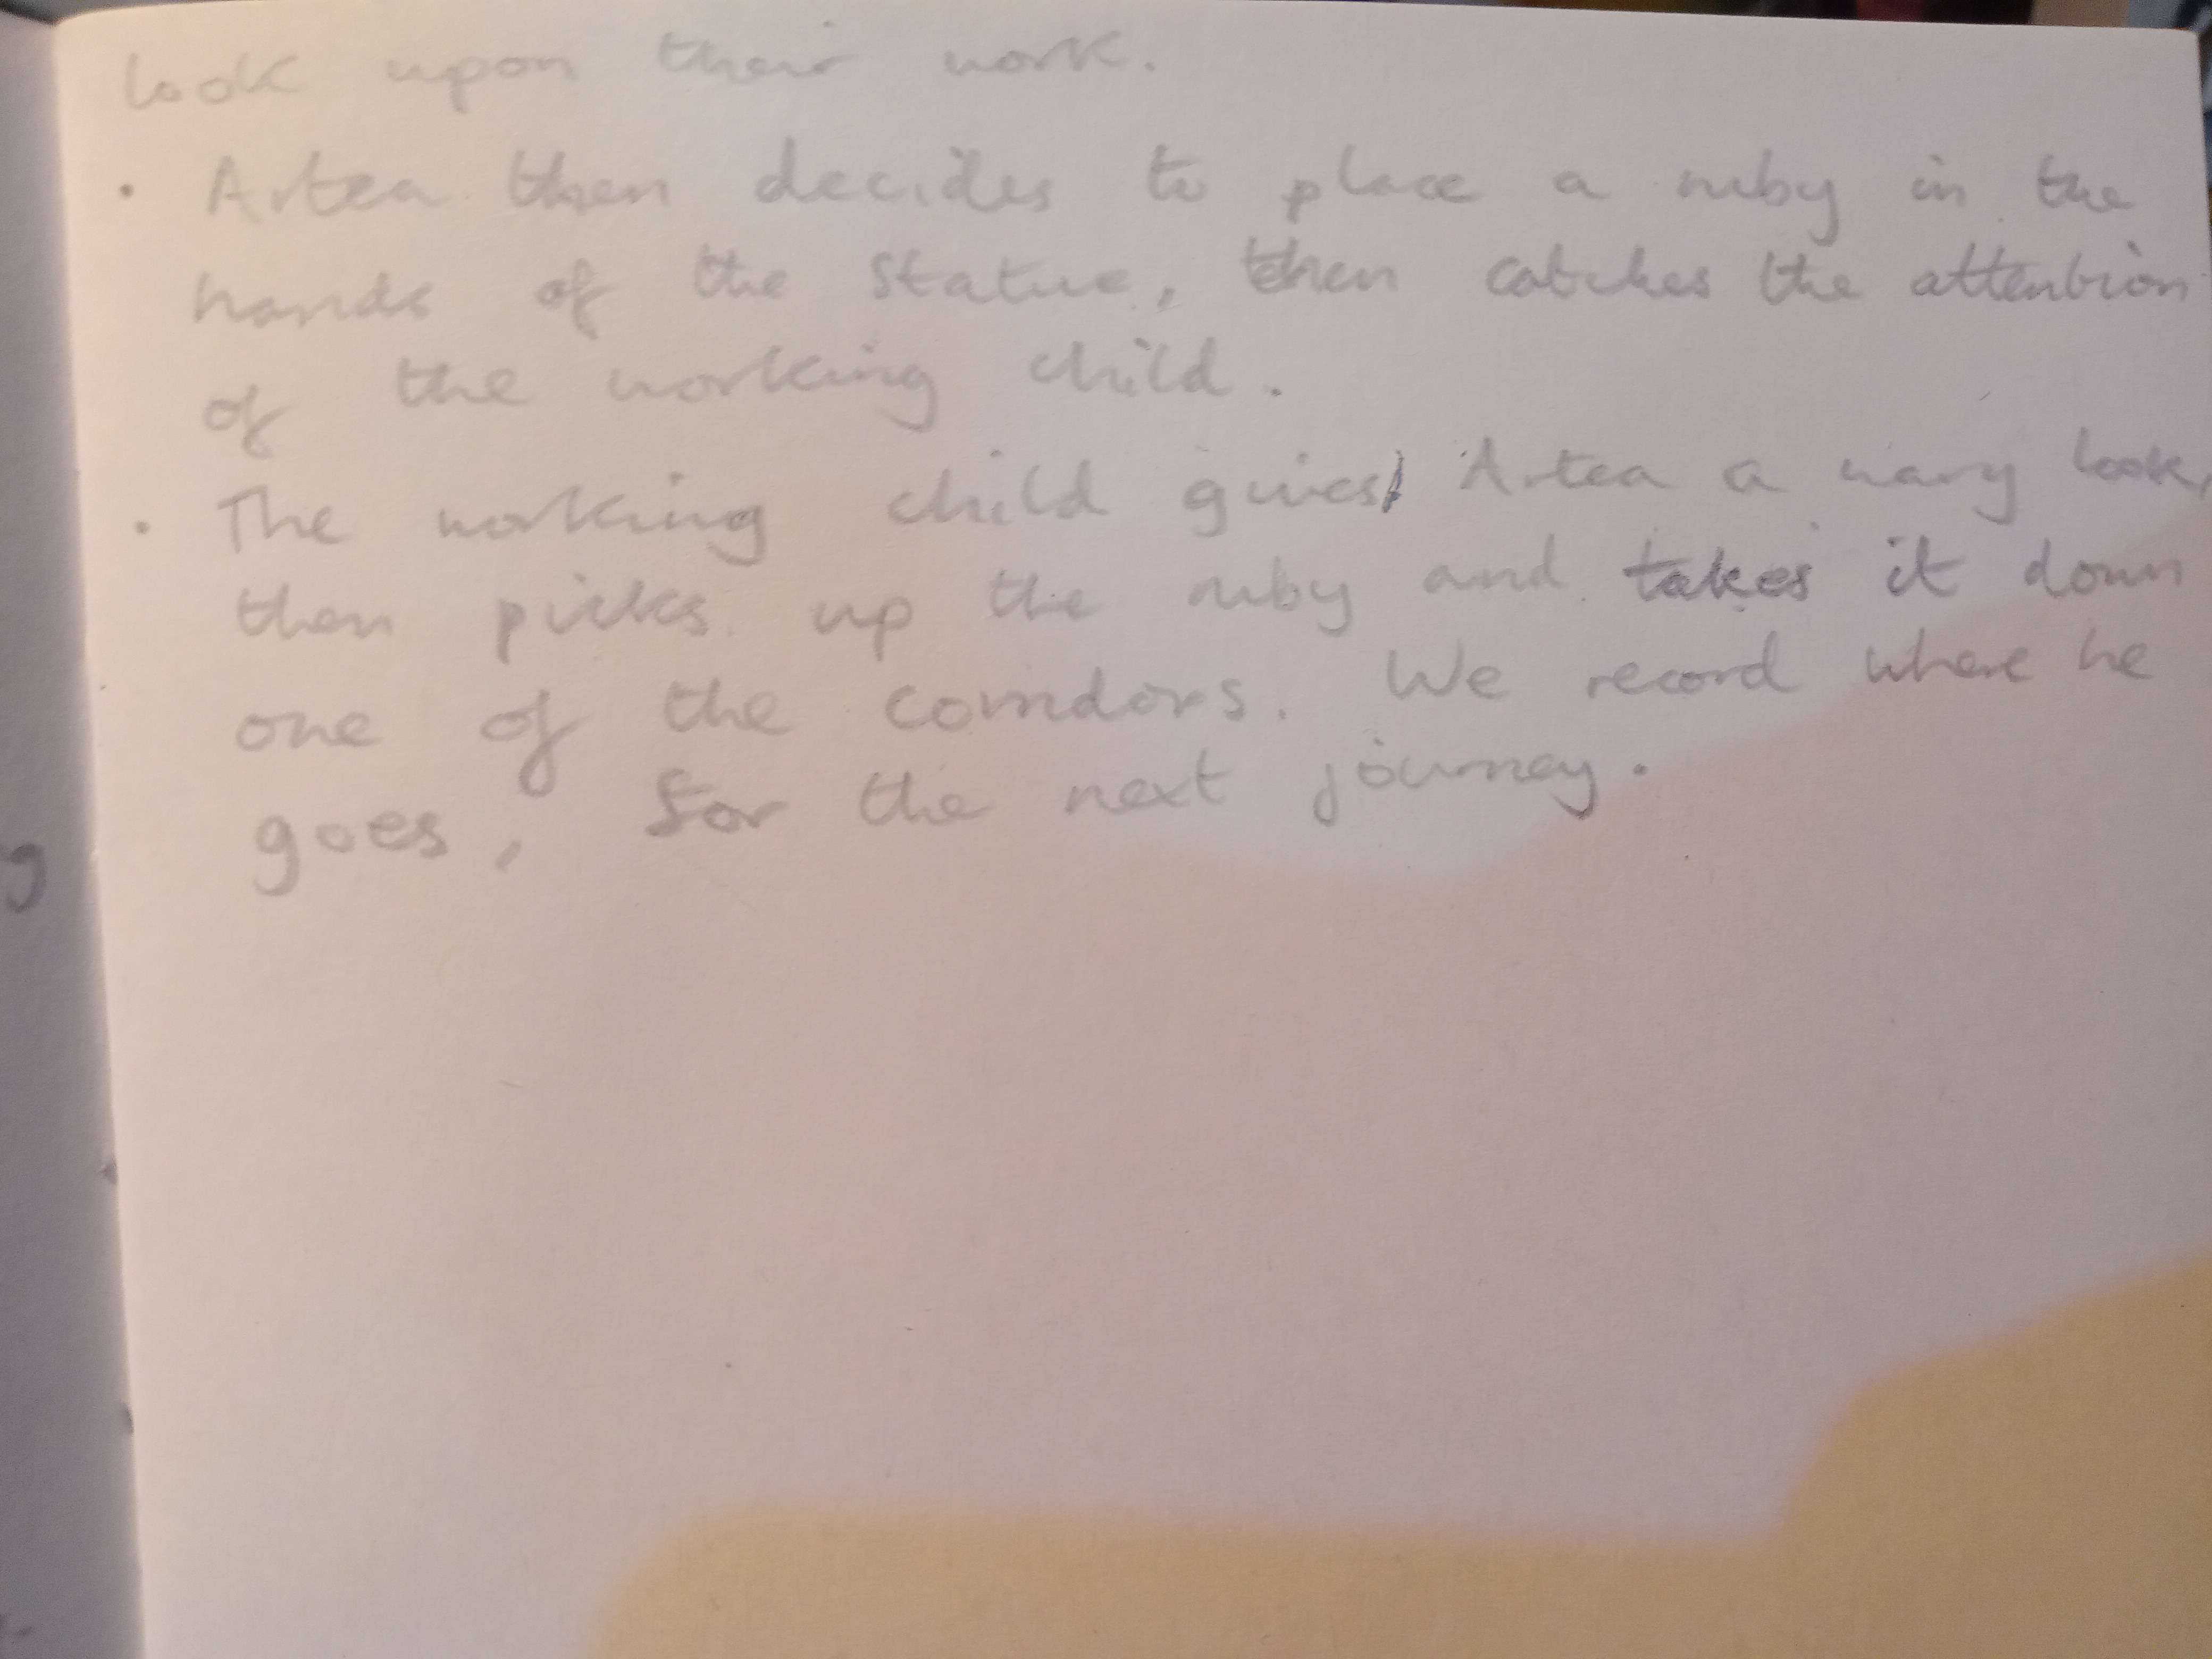 look upon their work.
· Artea then decides to place a ruby in the
hands of the statue, then catches the attention
of the working child.
· The working child gives Artea a wary look,
then picks up the ruby and takes it down
one of the corridors. We record where he
goes, for the next journey.
g